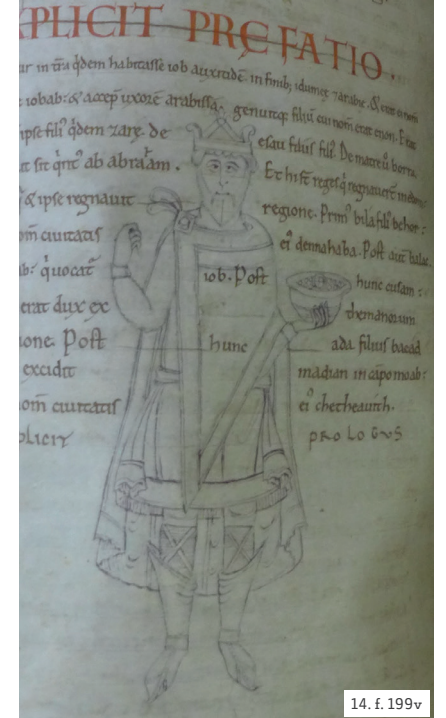 XPLICIT PREFATIO.
ur in t̄ra q̄dem habitasse iob auxitidē. in finib; idumeę ⁊ arabię. & erat ei nom̄
: iobab: & accep̄ uxorē arabissā. genuitq; filiū cui nom̄ erat enon. Erat
ipse filiꝰ q̄dem zarę. de esau filius filiꝰ. De matre ū borra
ut sit qⁱntꝰ ab abraā̄m. Et hi s̄t reges qⁱ regnauer̄
& ipse regnauit regione. Primꝰ bila filiꝰ behor:
om̄ ciuitatis eiꝰ dennahaba. Post aut̄ balac
ab: qⁱ uocatꝰ iob. Post hunc cusam:
erat dux ex themanorum
ione. Post hunc ada filius badad
excidit madian in cāpo moab:
om̄ ciuitatis eiꝰ chetheauith.
PLICIT PROLOGVS
14. f. 199v